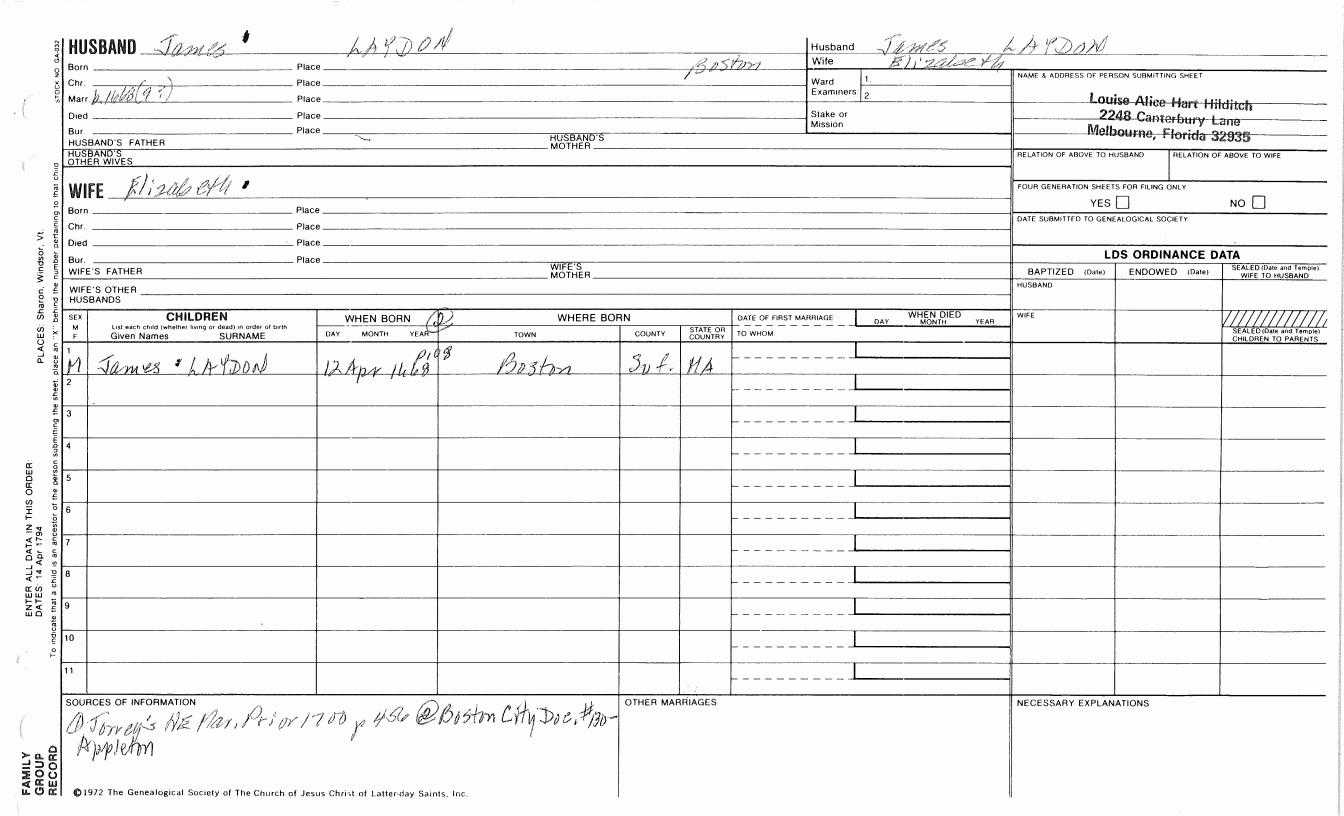 HUSBAND James ' LAYDON
Born Place Boston
Chr. Place
Marr b. 1668(9?) Place
Died Place
Bur. Place
HUSBAND'S FATHER HUSBAND'S MOTHER
HUSBAND'S OTHER WIVES
Husband James LAYDON
Wife Elizabeth
Ward Examiners 1. 2.
Stake or Mission
NAME & ADDRESS OF PERSON SUBMITTING SHEET
Louise Alice Hart Hilditch
2248 Canterbury Lane
Melbourne, Florida 32935
RELATION OF ABOVE TO HUSBAND RELATION OF ABOVE TO WIFE
FOUR GENERATION SHEETS FOR FILING ONLY
YES NO
DATE SUBMITTED TO GENEALOGICAL SOCIETY
WIFE Elizabeth '
Born Place
Chr. Place
Died Place
Bur. Place
WIFE'S FATHER WIFE'S MOTHER
WIFE'S OTHER HUSBANDS
LDS ORDINANCE DATA
BAPTIZED (Date) ENDOWED (Date) SEALED (Date and Temple) WIFE TO HUSBAND
HUSBAND
WIFE
SEALED (Date and Temple) CHILDREN TO PARENTS
SEX M F
CHILDREN
List each child (whether living or dead) in order of birth
Given Names SURNAME
WHEN BORN 2
DAY MONTH YEAR
WHERE BORN
TOWN COUNTY STATE OR COUNTRY
DATE OF FIRST MARRIAGE
TO WHOM
WHEN DIED
DAY MONTH YEAR
1 M James ' LAYDON 12 Apr 1668 p108 Boston Suf. MA
2
3
4
5
6
7
8
9
10
11
SOURCES OF INFORMATION
① Torrey's NE Mar. Prior 1700 p 456 ② Boston City Doc. #130-
Appleton
OTHER MARRIAGES
NECESSARY EXPLANATIONS
©1972 The Genealogical Society of The Church of Jesus Christ of Latter-day Saints, Inc.
STOCK NO. GA-032
PLACES Sharon, Windsor, Vt.
To indicate that a child is an ancestor of the person submitting the sheet, place an "X" behind the number pertaining to that child
ENTER ALL DATA IN THIS ORDER:
DATES: 14 Apr 1794
FAMILY
GROUP
RECORD